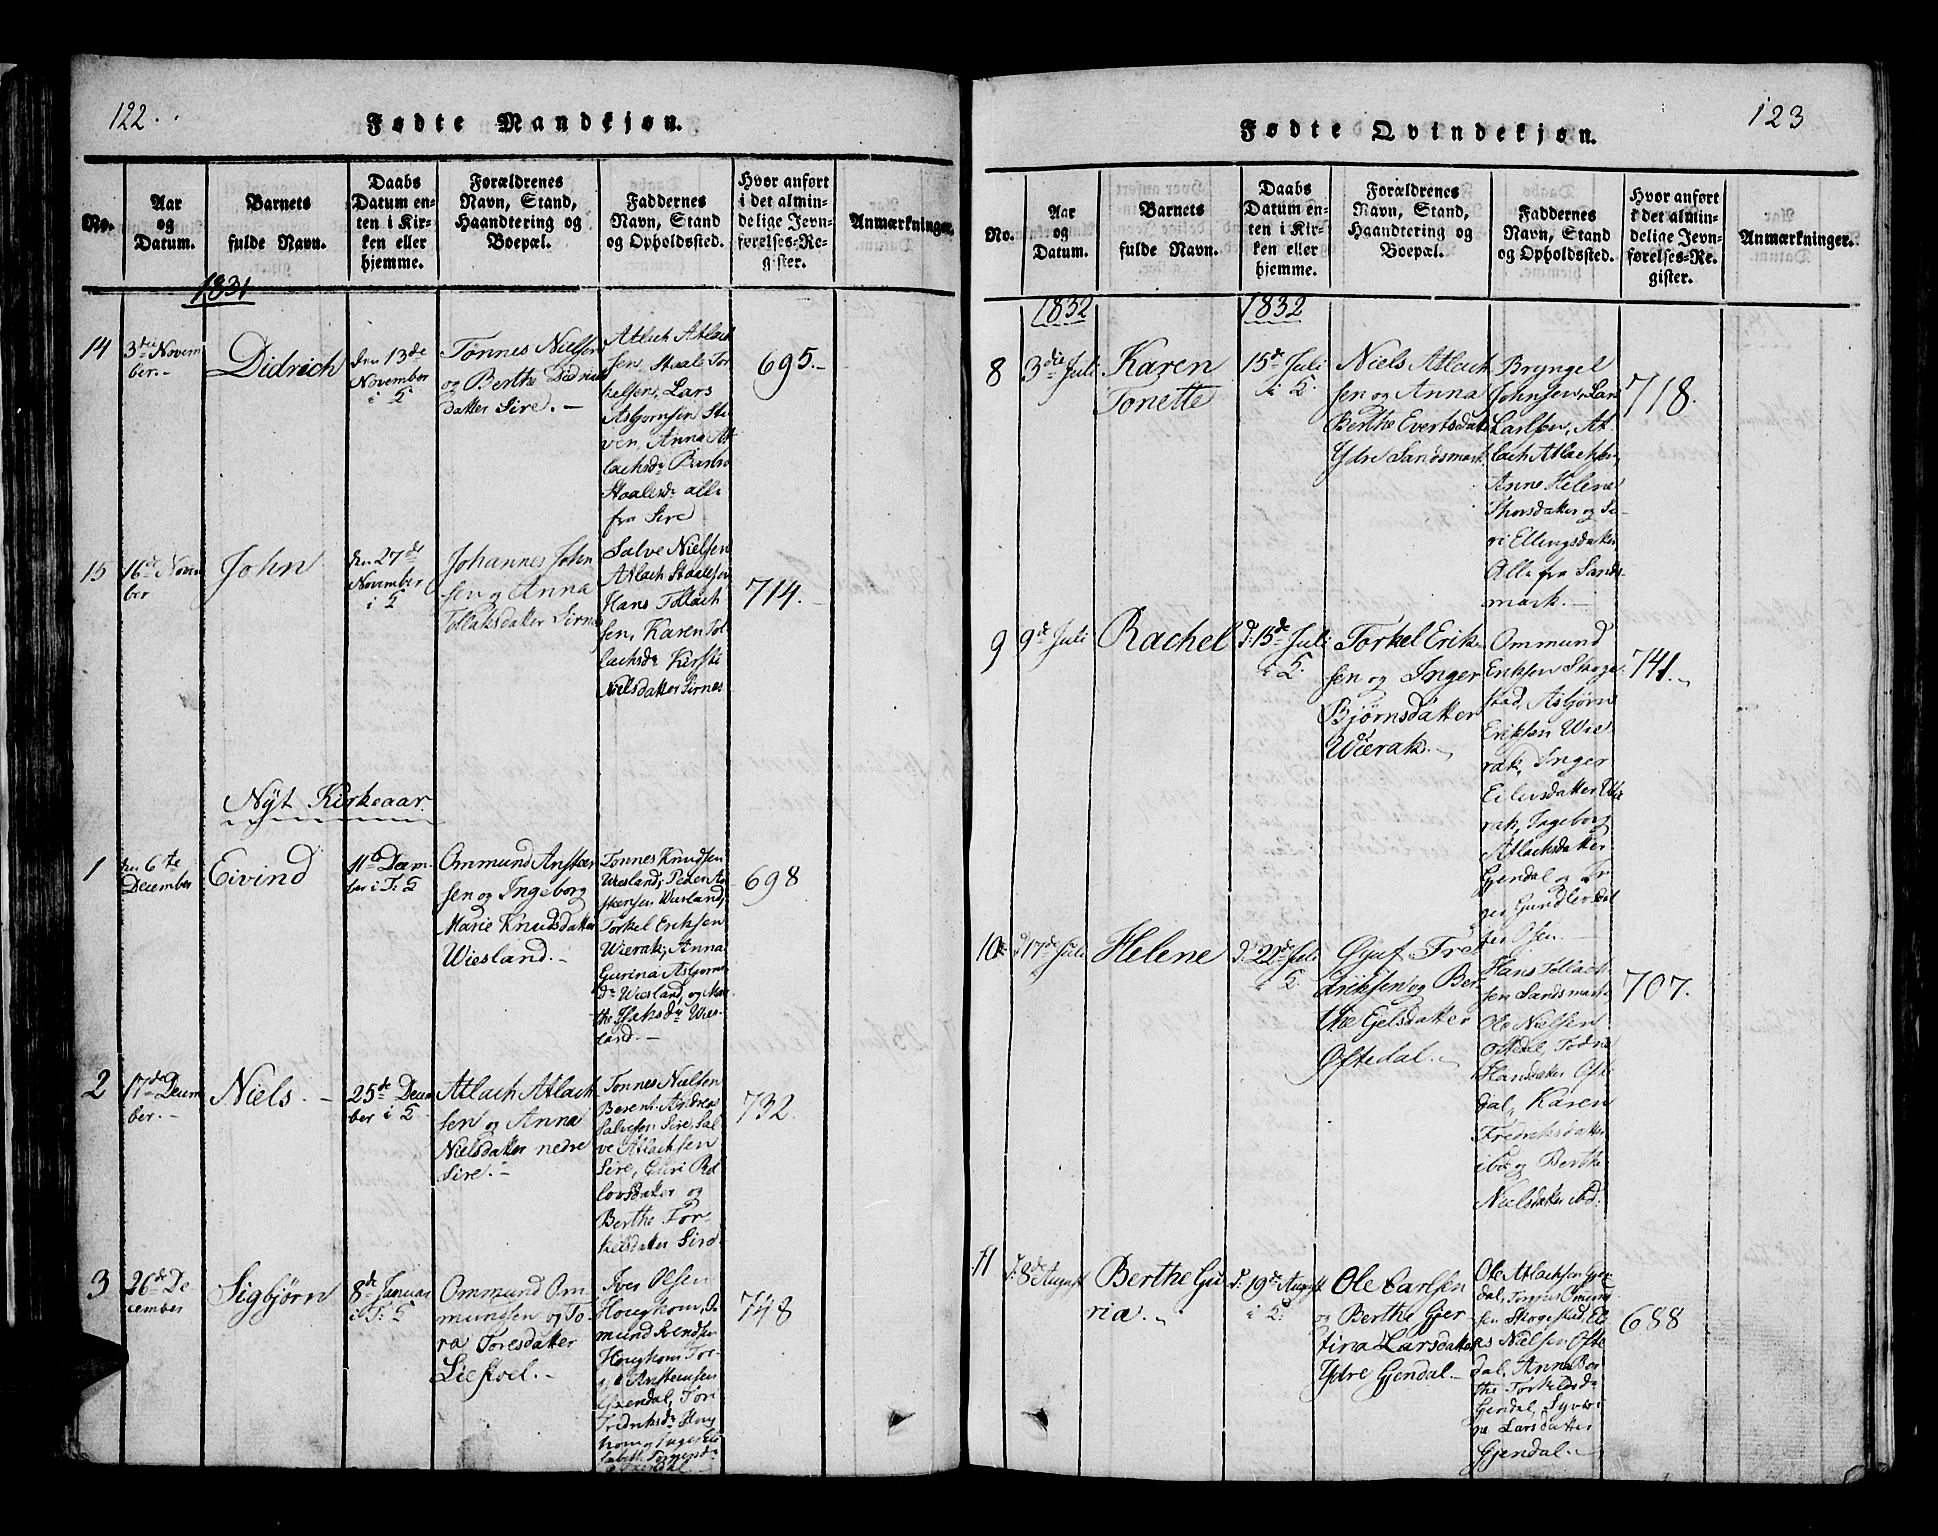 122.
Fødte Mandkjøn.
No.
Aar
og
Datum.
Barnets
fulde Navn.
Daabs
Datum en-
ten i Kir-
ken eller
hjemme.
Forældrenes
Navn, Stand,
Haandtering og
Boepæl.
Faddernes
Navn, Stand
og Opholdssted.
Hvor anført
i det almin-
delige Jevn-
førelses-Re-
gister.
Anmærkninger.
1831
14
3die Novem
ber.-
Didrich
den 13de
November
i S
Tønnes Nielsen
og Berthe Didriks
datter Sire.-
Atlach Atlach
sen, Staale Tor
kelsen, Lars
Asbjornsen
Anna At
lachsdr
Staalesdr alle
fra Sire
695.-
15
16de Novem
ber
John
den 27de
November
i S
Johannes John
sen og Anna
Tollaksdatter Sirnes
Salve Nielsen
Atlach Staalesen
Hans Tollach
sen, Karen Tol
lachsdr Kirsti
Nielsdatter Sirnes
714.-
Nÿt Kirkeaar
1
den 6te
December
Eivind
11te Decem
ber i T: S
Ommund
sen og Ingeborg
Marie Knudsdatter
Wiesland.-
Tonnes Knudsen
Wiesland, Peder
Wiesland,
Torkel Eriksen
Wierak, Anna
Gurina Asbjorns
dr Wiesland, og Mar
the Wies-
land.-
698
2
17de Decem
ber.-
Niels.-
25de Decem
ber i S
Atlach Atlach
sen og Anna
Nielsdatter nedre
Sire.-
Tonnes Nielsen
Berent Andreas
Salvesen Sire, Sal
ve Atlachsen
Sire, Guri
datter og
Berthe Tor-
kelsdatter Sire-
732.
3
26de De
cember
Sigbjørn
8de Januar
i T: S
Ommund Om
mundsen og To-
ra Toresdatter
Liestoel.-
Iver Olsen
Houghom,
mund Svendsen
Houghom
Gyendal, Tori
Fredriksdr Houg
hom og Inger Eli
sabeth
748
123
Fødte Qvindekjøn.
No.
Aar
og
Datum.
Barnets
fulde Navn.
Daabs
Datum en-
ten i Kir-
ken eller
hjemme.
Forældrenes
Navn, Stand,
Haandtering og
Boepæl.
Faddernes
Navn, Stand
og Opholdssted.
Hvor anført
i det almin-
delige Jevn-
førelses-Re-
gister.
Anmærkninger.
1832
1832
8
3die Juli
Karen
Tonette
15de Juli
i S.
Niels Atlach
sen og Anna
Berthe Evertsdatter
Ydre Sandsmark
Bryngel
Johnsen, Lars
Larsen, At
lach Atlachsen,
Anne Helene
Thorsdatter og Si-
ri Ellingsdatter
Alle fra Sands-
mark.-
718.
9
9de Juli
Rachel
d: 15de Juli
i S.
Torkel Erik-
sen og Inger
Bjørnsdatter
Wierak.-
Ommund
Eriksen Skoge
stad, Asbjørn
Eriksen Wie
rak, Inger
Eilersdatter Wie
rak, Ingeborg
Atlachsdatter
Gjendal og In
ger
ter Osen.-
741.-
10
d: 17de Juli
Helene
d: 22de Juli
i S.
Fre
driksen og Ber
the Egelsdatter
Øftedal.-
Hans Tollach
sen Sandsmark
Ole Nielsen
Oftedal, Todne
Hansdatter Ofte
dal, Karen
Fredriksdatter
ibd og Berthe
Nielsdatter
707.
11
d: 8de August
Berthe Gu
ria.-
d: 19de August
i S.
Ole Carlsen
og Berthe Gjer
tina Larsdatter
Ydre Gjendal.-
Ole Atlachsen Gjen
dal, Tonnes Omund
sen Skogestad, El
as Nielsen Ofte
dal, Anna Ber
the Torkelsdr
Gjendal, Syver
ine Larsdatter
Gjendal.-
688